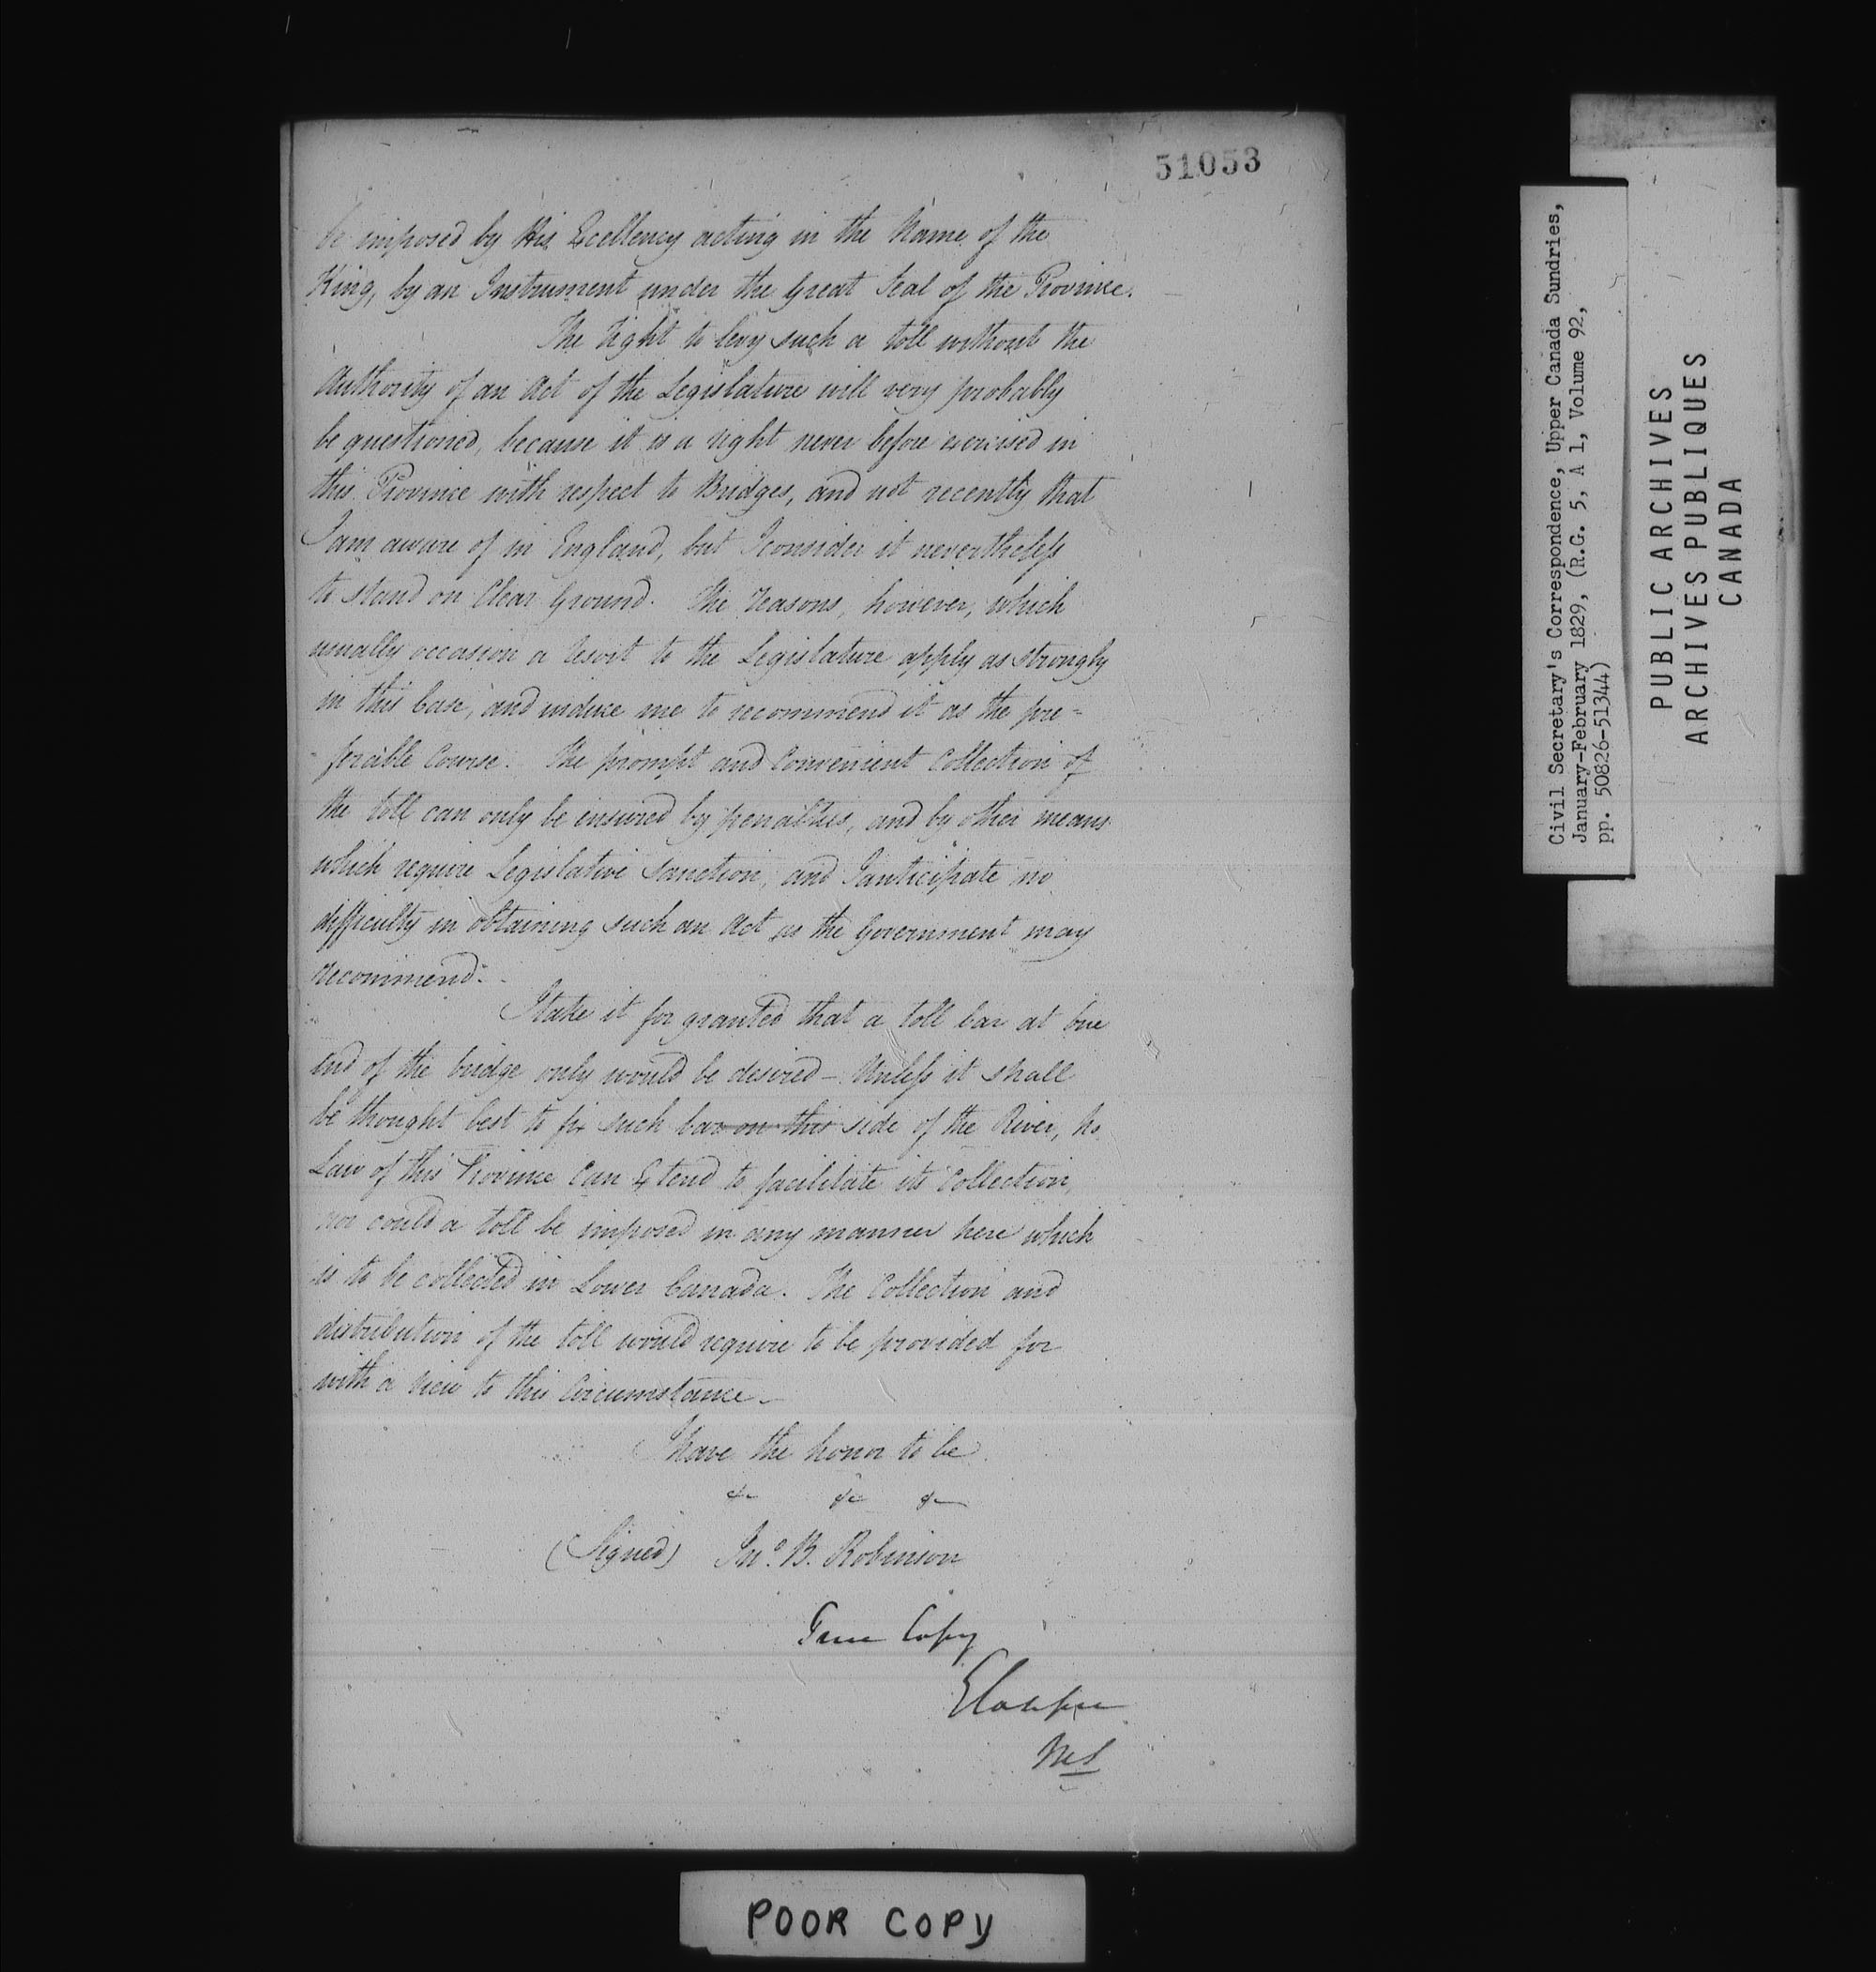 51053
be imposed by His Excellency acting in the Name of the
King, by an Instrument under the Great Seal of the Province.
The right to levy such a toll without the
Authority of an Act of the Legislature will very probably
be questioned, because it is a right never before exercised in
this Province with respect to Bridges, and not recently that
I am aware of in England, but I consider it nevertheless
to stand on Clear Ground. The reasons, however, which
usually occasion a resort to the Legislature apply as strongly
in this Case, and induce me to recommend it as the pre-
ferable Course. The prompt and Convenient Collection of
the toll can only be insured by penalties, and by other means
which require Legislative Sanction, and I anticipate no
difficulty in obtaining such an Act as the Government may
recommend.
I take it for granted that a toll bar at one
End of the bridge only would be desired - Unless it shall
be thought best to fix such bar on this side of the River, No
Law of this Province Can Extend to facilitate its Collection,
nor could a toll be imposed in any manner here which
is to be collected in Lower Canada. The Collection and
distribution of the toll would require to be provided for
with a view to this Circumstance.
I have the honor to be
&c &c &c
(Signed) Jno. B. Robinson
True Copy
POOR COPY
Civil Secretary's Correspondence, Upper Canada Sundries,
January-February 1829, (R.G. 5, A 1, Volume 92,
pp. 50826-51344)
PUBLIC ARCHIVES
ARCHIVES PUBLIQUES
CANADA